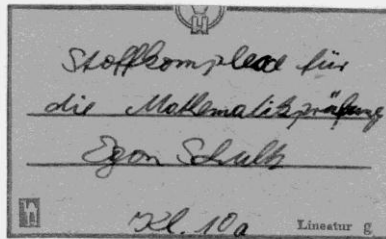 Stoffkomplexe für
die Mathematikprüfung
Egon Schultz
Kl. 10a
Lineatur g